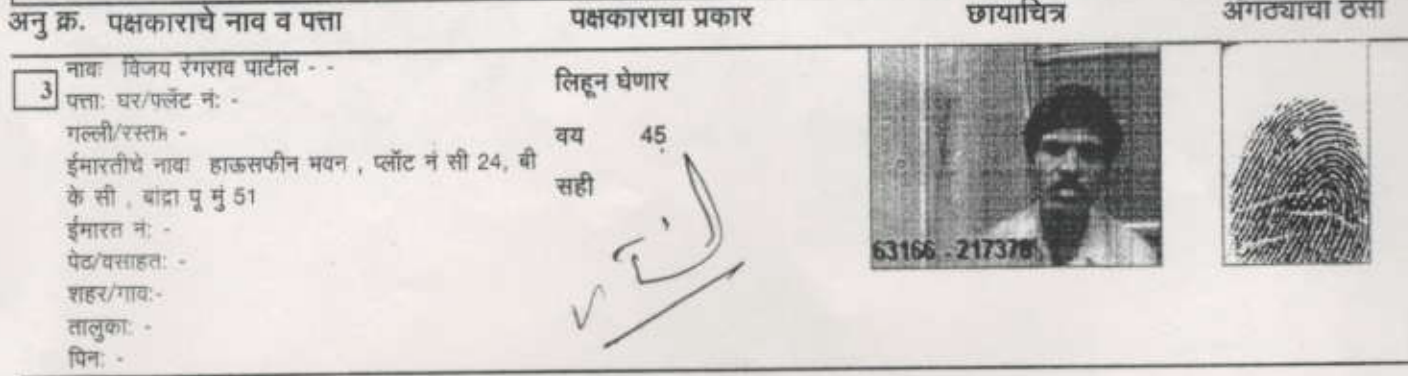 अनु क्र. पक्षकाराचे नाव व पत्ता पक्षकाराचा प्रकार छायाचित्र अंगठ्याचा ठसा
3 नावः विजय रंगराव पाटील - -
पत्ताः घर/फ्लॅट नं: -
गल्ली/रस्ताः -
ईमारतीचे नावः हाऊसफीन भवन , प्लॉट नं सी 24, बी
के सी , बांद्रा पू मुं 51
ईमारत नं: -
पेठ/वसाहत: -
शहर/गाव:-
तालुका: -
पिन: -
लिहून घेणार
वय 45
सही
63166 - 217378